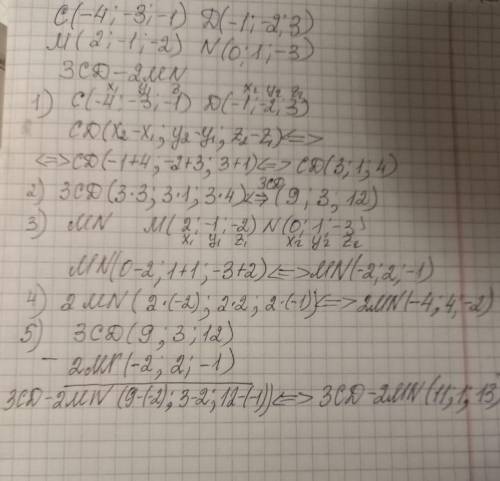 C(-4; -3; -1) D(-1; -2; 3)
M(2; -1; -2) N(0; 1; -3)
3CD-2MN
x₁ y₁ z₁ x₂ y₂ z₂
1) C(-4; -3; -1) D(-1; -2; 3)
CD(x₂-x₁; y₂-y₁; z₂-z₁)<=>
<=>CD(-1+4; -2+3; 3+1)<=> CD(3; 1; 4)
2) 3CD(3·3; 3·1; 3·4)<=> 3CD (9; 3; 12)
3) MN M(2; -1; -2) N(0; 1; -3)
x₁ y₁ z₁ x₂ y₂ z₂
MN(0-2; 1+1; -3+2)<=>MN(-2; 2; -1)
4) 2MN(2·(-2); 2·2; 2·(-1))<=>2MN(-4; 4; -2)
5) 3CD(9; 3; 12)
- 2MN(-2; 2; -1)
3CD-2MN (9-(-2); 3-2; 12-(-1))<=> 3CD-2MN(11; 1; 13)